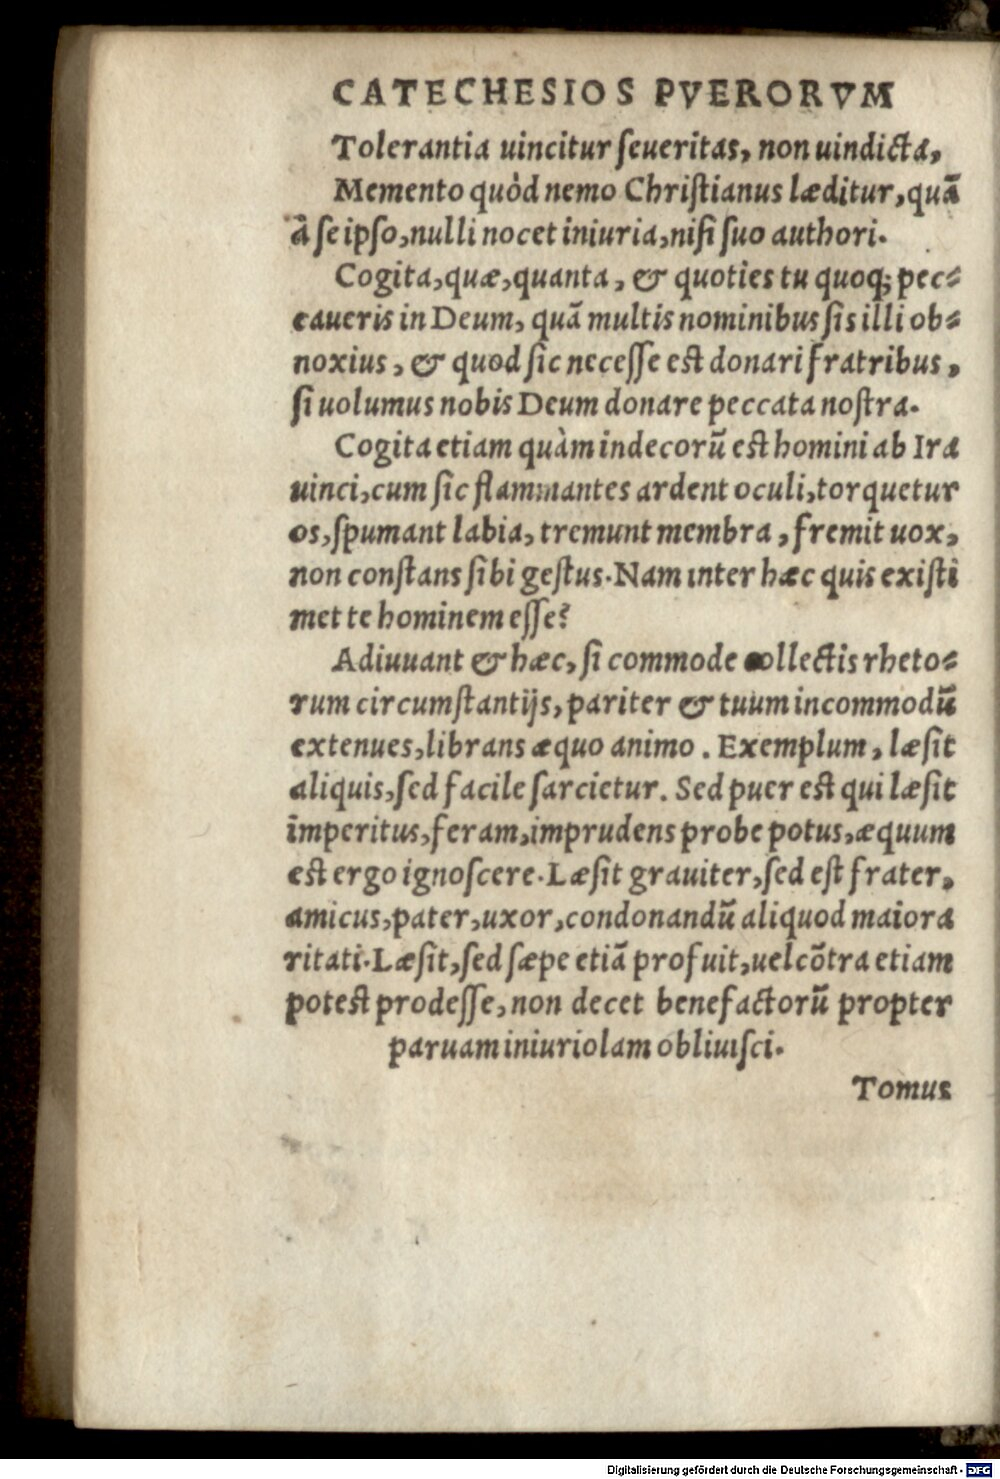 CATECHESIOS PVERORVM
Tolerantia uincitur ſeueritas, non uindicta,
Memento quòd nemo Chriſtianus læditur, quã
à ſe ipſo, nulli nocet iniuria, niſi ſuo authori.
Cogita, quæ, quanta, & quoties tu quoq; pec-
caueris in Deum, quã multis nominibus ſis illi ob-
noxius, & quod ſic neceſſe eſt donari fratribus,
ſi uolumus nobis Deum donare peccata noſtra.
Cogita etiam quàm indecorũ eſt homini ab Ira
uinci, cum ſic flammantes ardent oculi, torquetur
os, ſpumant labia, tremunt membra, fremit uox,
non conſtans ſibi geſtus. Nam inter hæc quis exiſti
met te hominem eſſe?
Adiuuant & hæc, ſi commode collectis rheto-
rum circumſtantijs, pariter & tuum incommodũ
extenues, librans æquo animo. Exemplum, læſit
aliquis, ſed facile ſarcietur. Sed puer eſt qui læſit
imperitus, feram, imprudens probe potus, æquum
eſt ergo ignoſcere. Læſit grauiter, ſed eſt frater,
amicus, pater, uxor, condonandũ aliquod maiora
ritati. Læſit, ſed ſæpe etiã profuit, uel cõtra etiam
poteſt prodeſſe, non decet benefactorũ propter
paruam iniuriolam obliuiſci.
Tomus
Digitalisierung gefördert durch die Deutsche Forschungsgemeinschaft - DFG